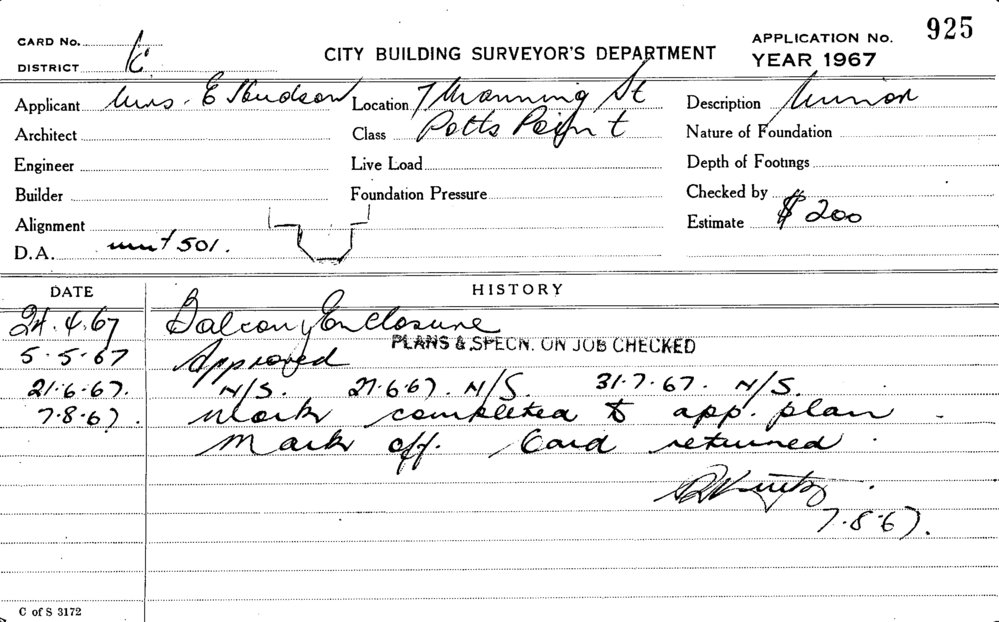 CARD No. 925
DISTRICT K.
CITY BUILDING SURVEYOR'S DEPARTMENT
APPLICATION No.
YEAR 1967
Applicant Mrs. E Hudson Location 7 Manning St Description Minor
Architect Class Potts Point Nature of Foundation
Engineer Live Load Depth of Footings
Builder Foundation Pressure Checked by
Alignment Estimate $200
D.A. unit 501.
DATE HISTORY
24.4.67 Balcony Enclosure
PLANS & SPECN. ON JOB CHECKED
5.5.67 Approved
21.6.67. N/S. 27.6.67. N/S. 31.7.67. N/S.
7.8.67. Work completed to app. plan.
Mark off. Card returned.
7.8.67.
C of S 3172